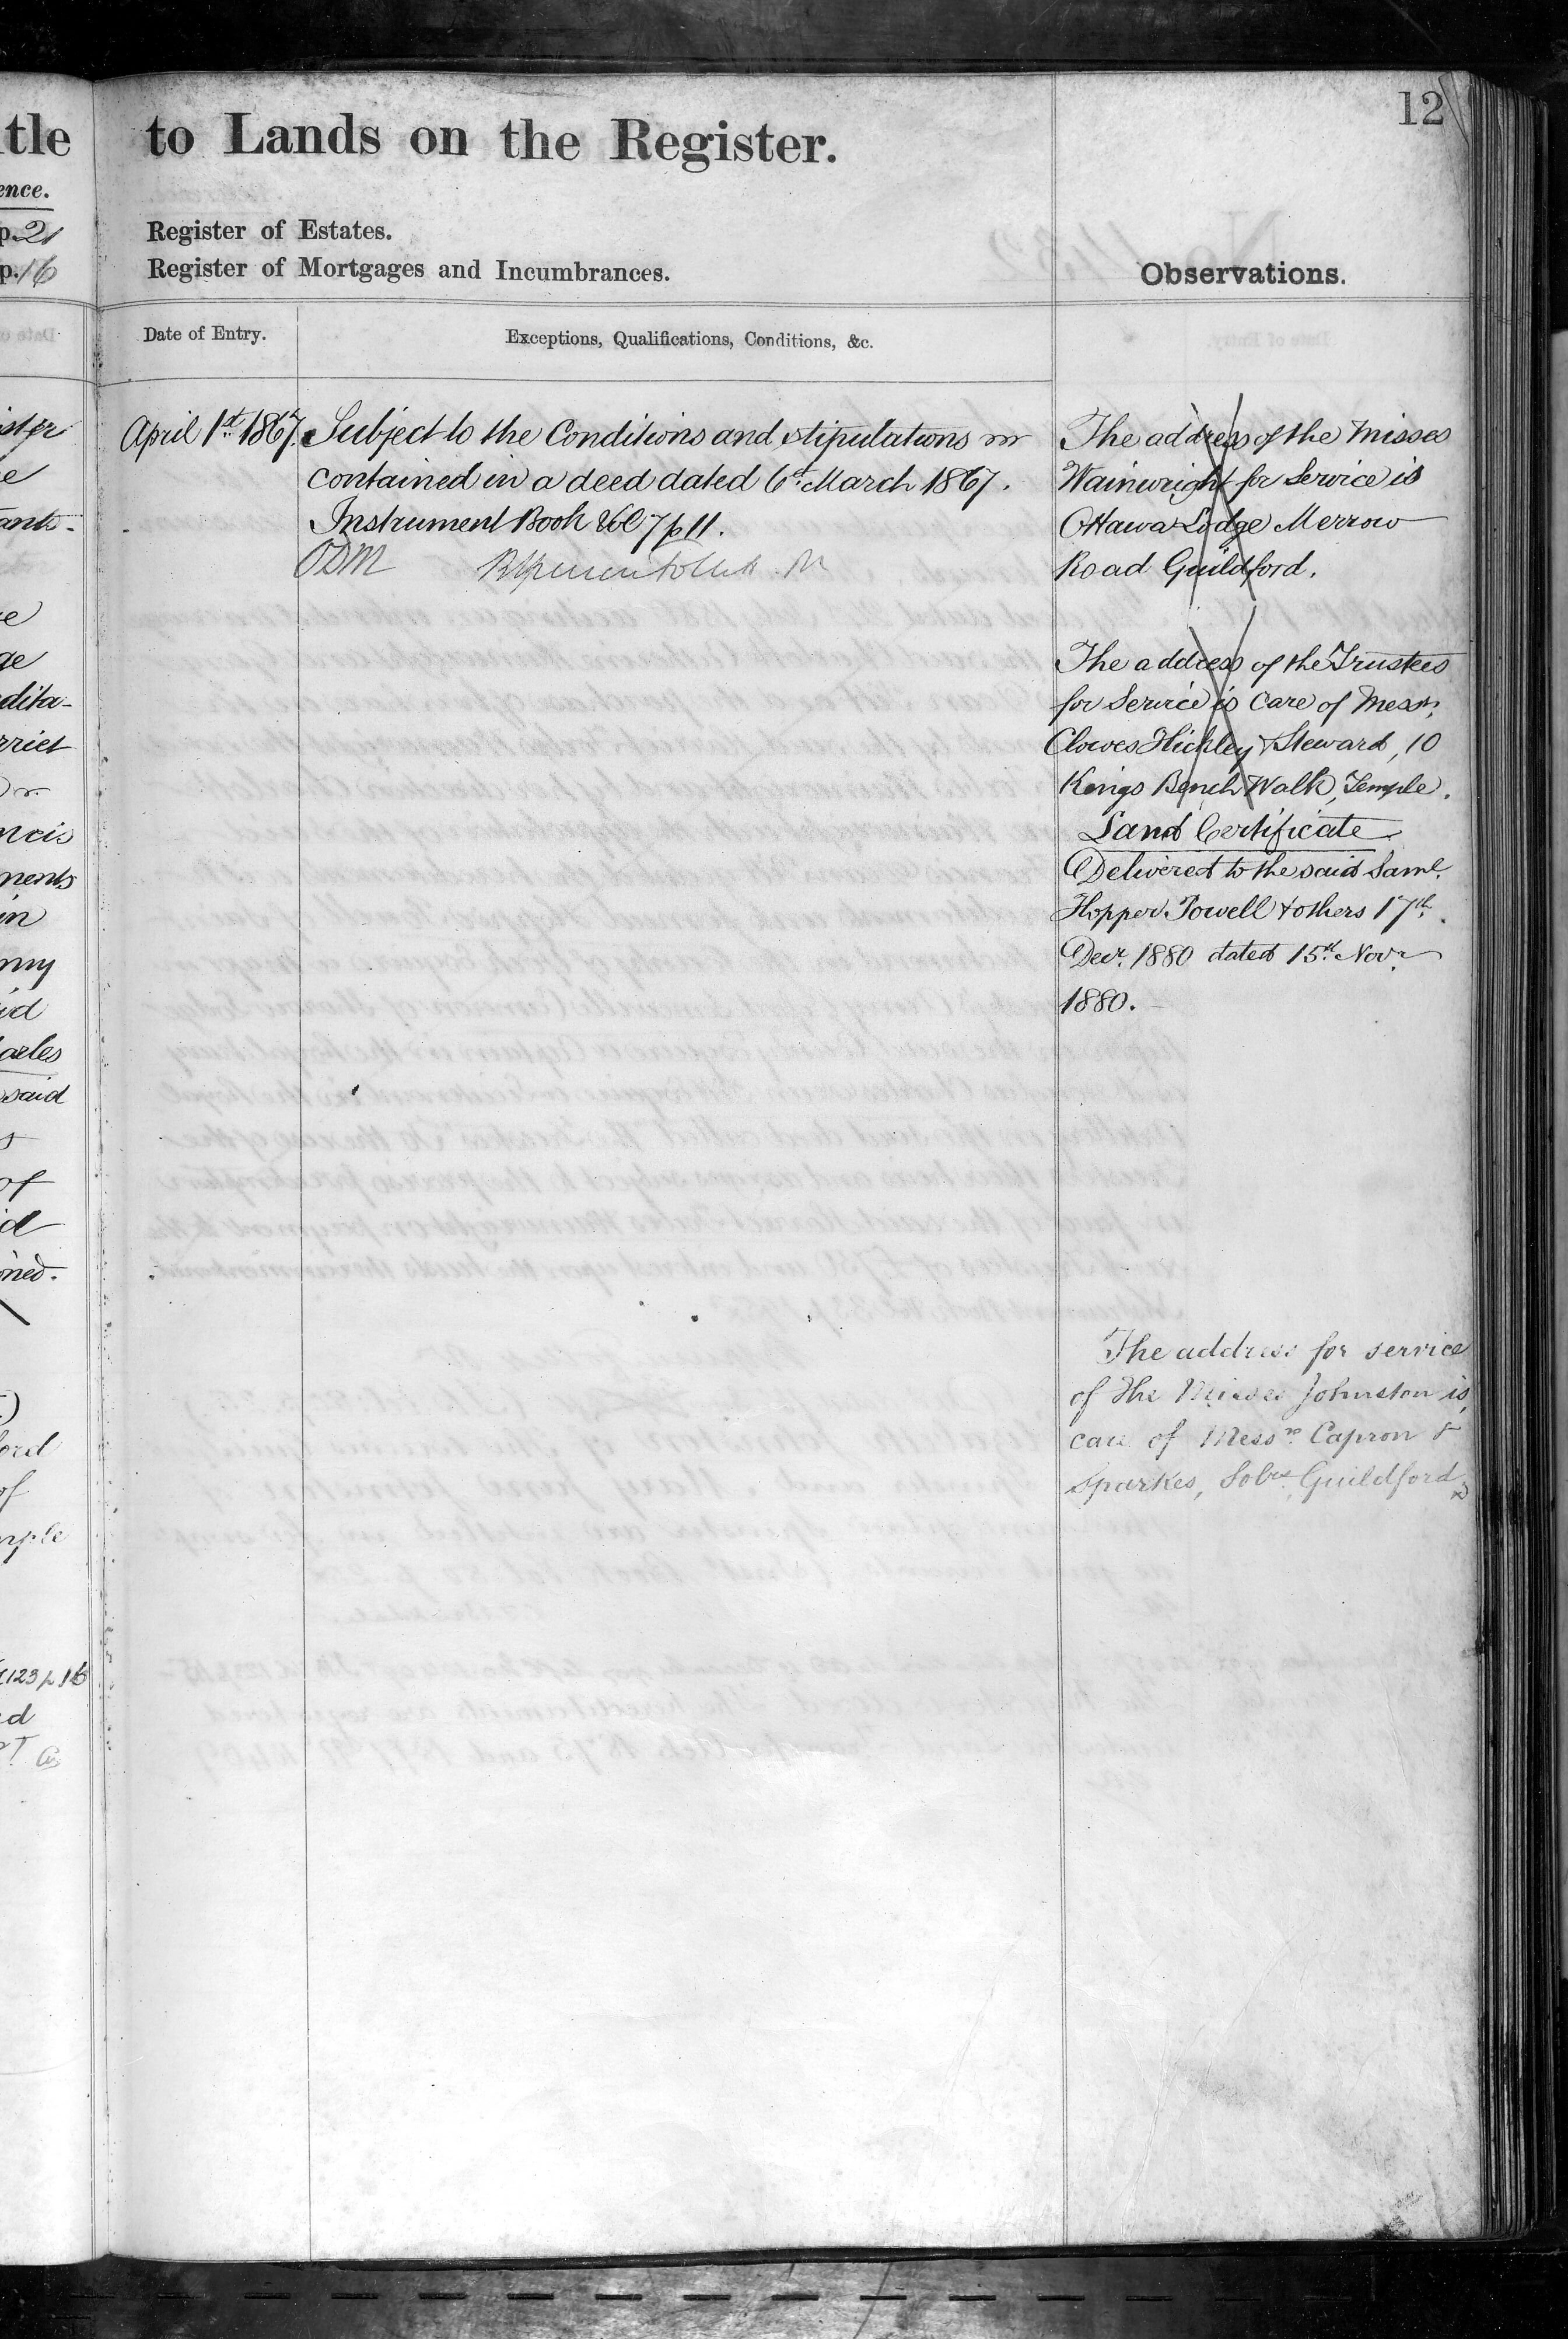 12
tle to Lands on the Register.
ence.
p. 21 Register of Estates.
p. 16 Register of Mortgages and Incumbrances.
Observations.
Date of Entry.
Exceptions, Qualifications, Conditions, &c.
April 1st. 1867. Subject to the Conditions and stipulations
contained in a deed dated 6th. March 1867.
Instrument Book Vol 7 p 11.
ODM
The address of the Misses
Wainwright for Service is
Ottawa Lodge Merrow
Road Guildford.
The address of the Trustees
for Service is Care of Messrs.
Clowes Hickley & Steward, 10
Kings Bench Walk, Temple.
Land Certificate
Delivered to the said Saml.
Hopper Powell & others 17th.
Decr. 1880 dated 15th. Novr.
1880.
The address for service
of the Misses Johnston is,
care of Messrs. Capron &
Sparkes, Solrs. Guildford
ge
dita-
rriet
ncis
ments
in
my
id
arles
said
of
id
oned.
ford
of
mple
123 p 16
ed